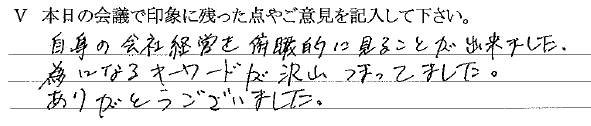 V 本日の会議で印象に残った点やご意見を記入して下さい。
自身の会社経営を俯瞰的に見ることが出来ました.
為になるキーワードが沢山つまってました。
ありがとうございました。